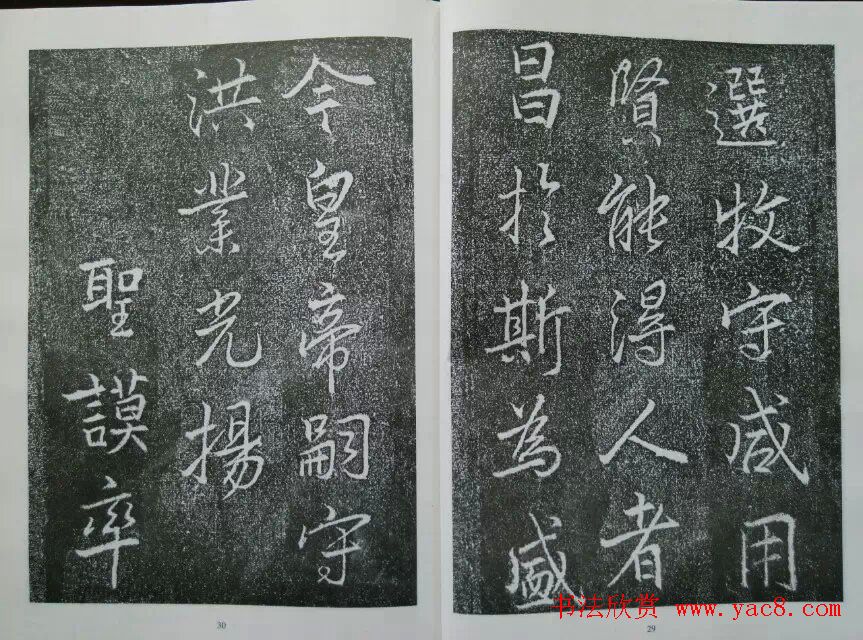 選牧守咸用
賢能得人者
昌於斯為盛
今皇帝嗣守
洪業光揚
聖謨率
30
29
书法欣赏 www.yac8.com